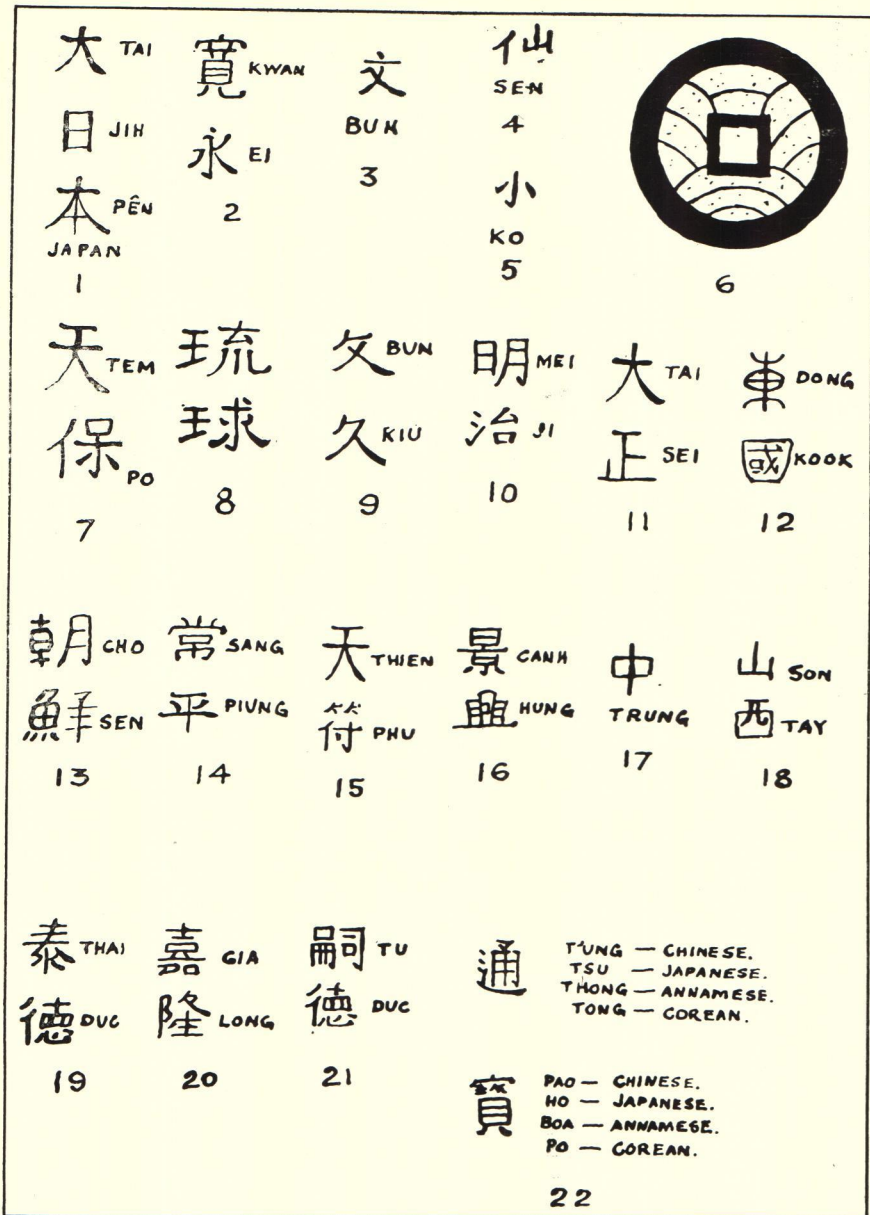 大 TAI
日 JIH
本 PÊN
JAPAN
1
寛 KWAN
永 EI
2
文
BUN
3
仙
SEN
4
小
KO
5
6
天 TEM
保 PO
7
琉
球
8
文 BUN
久 KIU
9
明 MEI
治 JI
10
大 TAI
正 SEI
11
東 DONG
國 KOOK
12
朝 CHO
鮮 SEN
13
常 SANG
平 PIUNG
14
天 THIEN
符 PHU
15
景 CANH
興 HUNG
16
中
TRUNG
17
山 SON
西 TAY
18
泰 THAI
德 DUC
19
嘉 GIA
隆 LONG
20
嗣 TU
德 DUC
21
通
T'UNG — CHINESE.
TSU — JAPANESE.
THONG — ANNAMESE.
TONG — COREAN.
寳
PAO — CHINESE.
HO — JAPANESE.
BOA — ANNAMESE.
PO — COREAN.
22